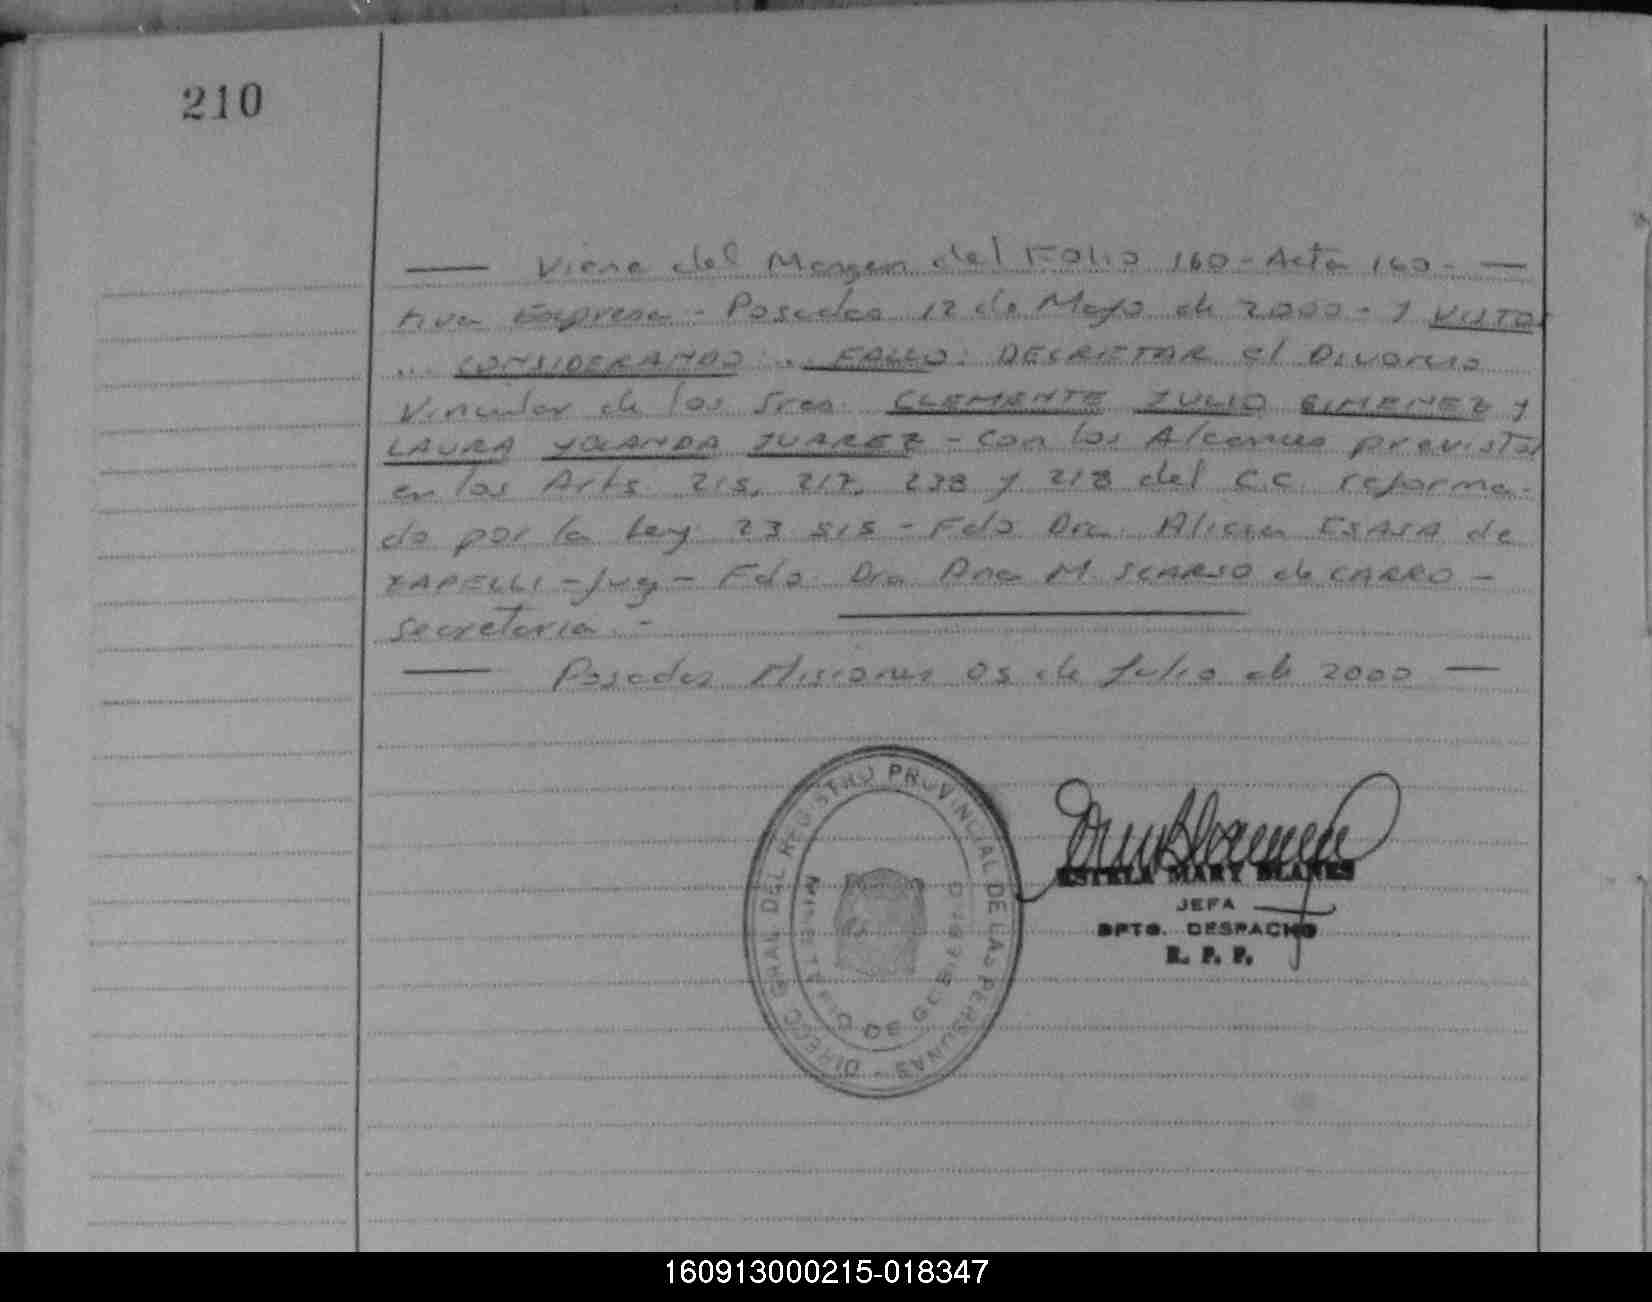 210
— Viene del Margen del Folio 160 - Acta 160 - —
tiva Expresa - Posadas 12 de Mayo de 2000 - Y VISTOS
... CONSIDERANDO: ... FALLO: DECRETAR el Divorcio
Vincular de los Sres. CLEMENTE JULIO GIMENEZ y
LAURA YOLANDA JUAREZ - Con los Alcances previstos
en los Arts. 215, 217, 238 y 218 del C.C. reforma-
do por la Ley 23 515 - Fdo Dra. Alicia ESAJA de
ZAPELLI - Juez - Fdo. Dra Ana M. SCARSO de CARRO -
Secretaria. -
— Posadas Misiones 05 de Julio de 2000 —
DIRECC. GRAL DEL REGISTRO PROVINCIAL DE LAS PERSONAS
MINISTERIO DE GOBIERNO
ESTELA MARY BLANES
JEFA
DPTO. DESPACHO
R. P. P.
160913000215-018347